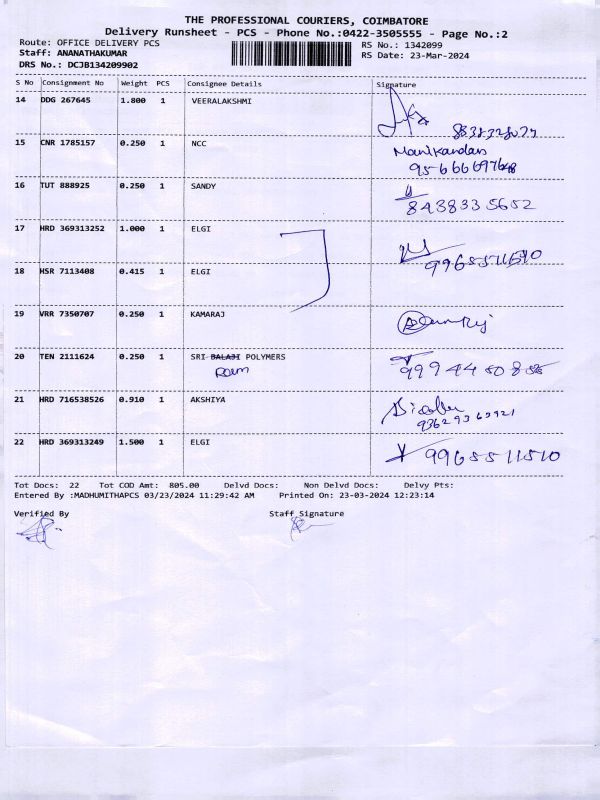 THE PROFESSIONAL COURIERS, COIMBATORE
Delivery Runsheet - PCS - Phone No.:0422-3505555 - Page No.:2
Route: OFFICE DELIVERY PCS
Staff: ANANATHAKUMAR
DRS No.: DCJB134209902
RS No.: 1342099
RS Date: 23-Mar-2024
S No Consignment No Weight PCS Consignee Details Signature
14 DDG 267645 1.800 1 VEERALAKSHMI
15 CNR 1785157 0.250 1 NCC Manikandan
95666697648
16 TUT 888925 0.250 1 SANDY
8438335652
17 HRD 369313252 1.000 1 ELGI
9965511510
18 HSR 7113408 0.415 1 ELGI
19 VRR 7350707 0.250 1 KAMARAJ
20 TEN 2111624 0.250 1 SRI BALAJI POLYMERS
Ram
21 HRD 716538526 0.910 1 AKSHIYA
9362936921
22 HRD 369313249 1.500 1 ELGI 9965511510
Tot Docs: 22 Tot COD Amt: 805.00 Delvd Docs: Non Delvd Docs: Delvy Pts:
Entered By :MADHUMITHAPCS 03/23/2024 11:29:42 AM Printed On: 23-03-2024 12:23:14
Verified By Staff Signature